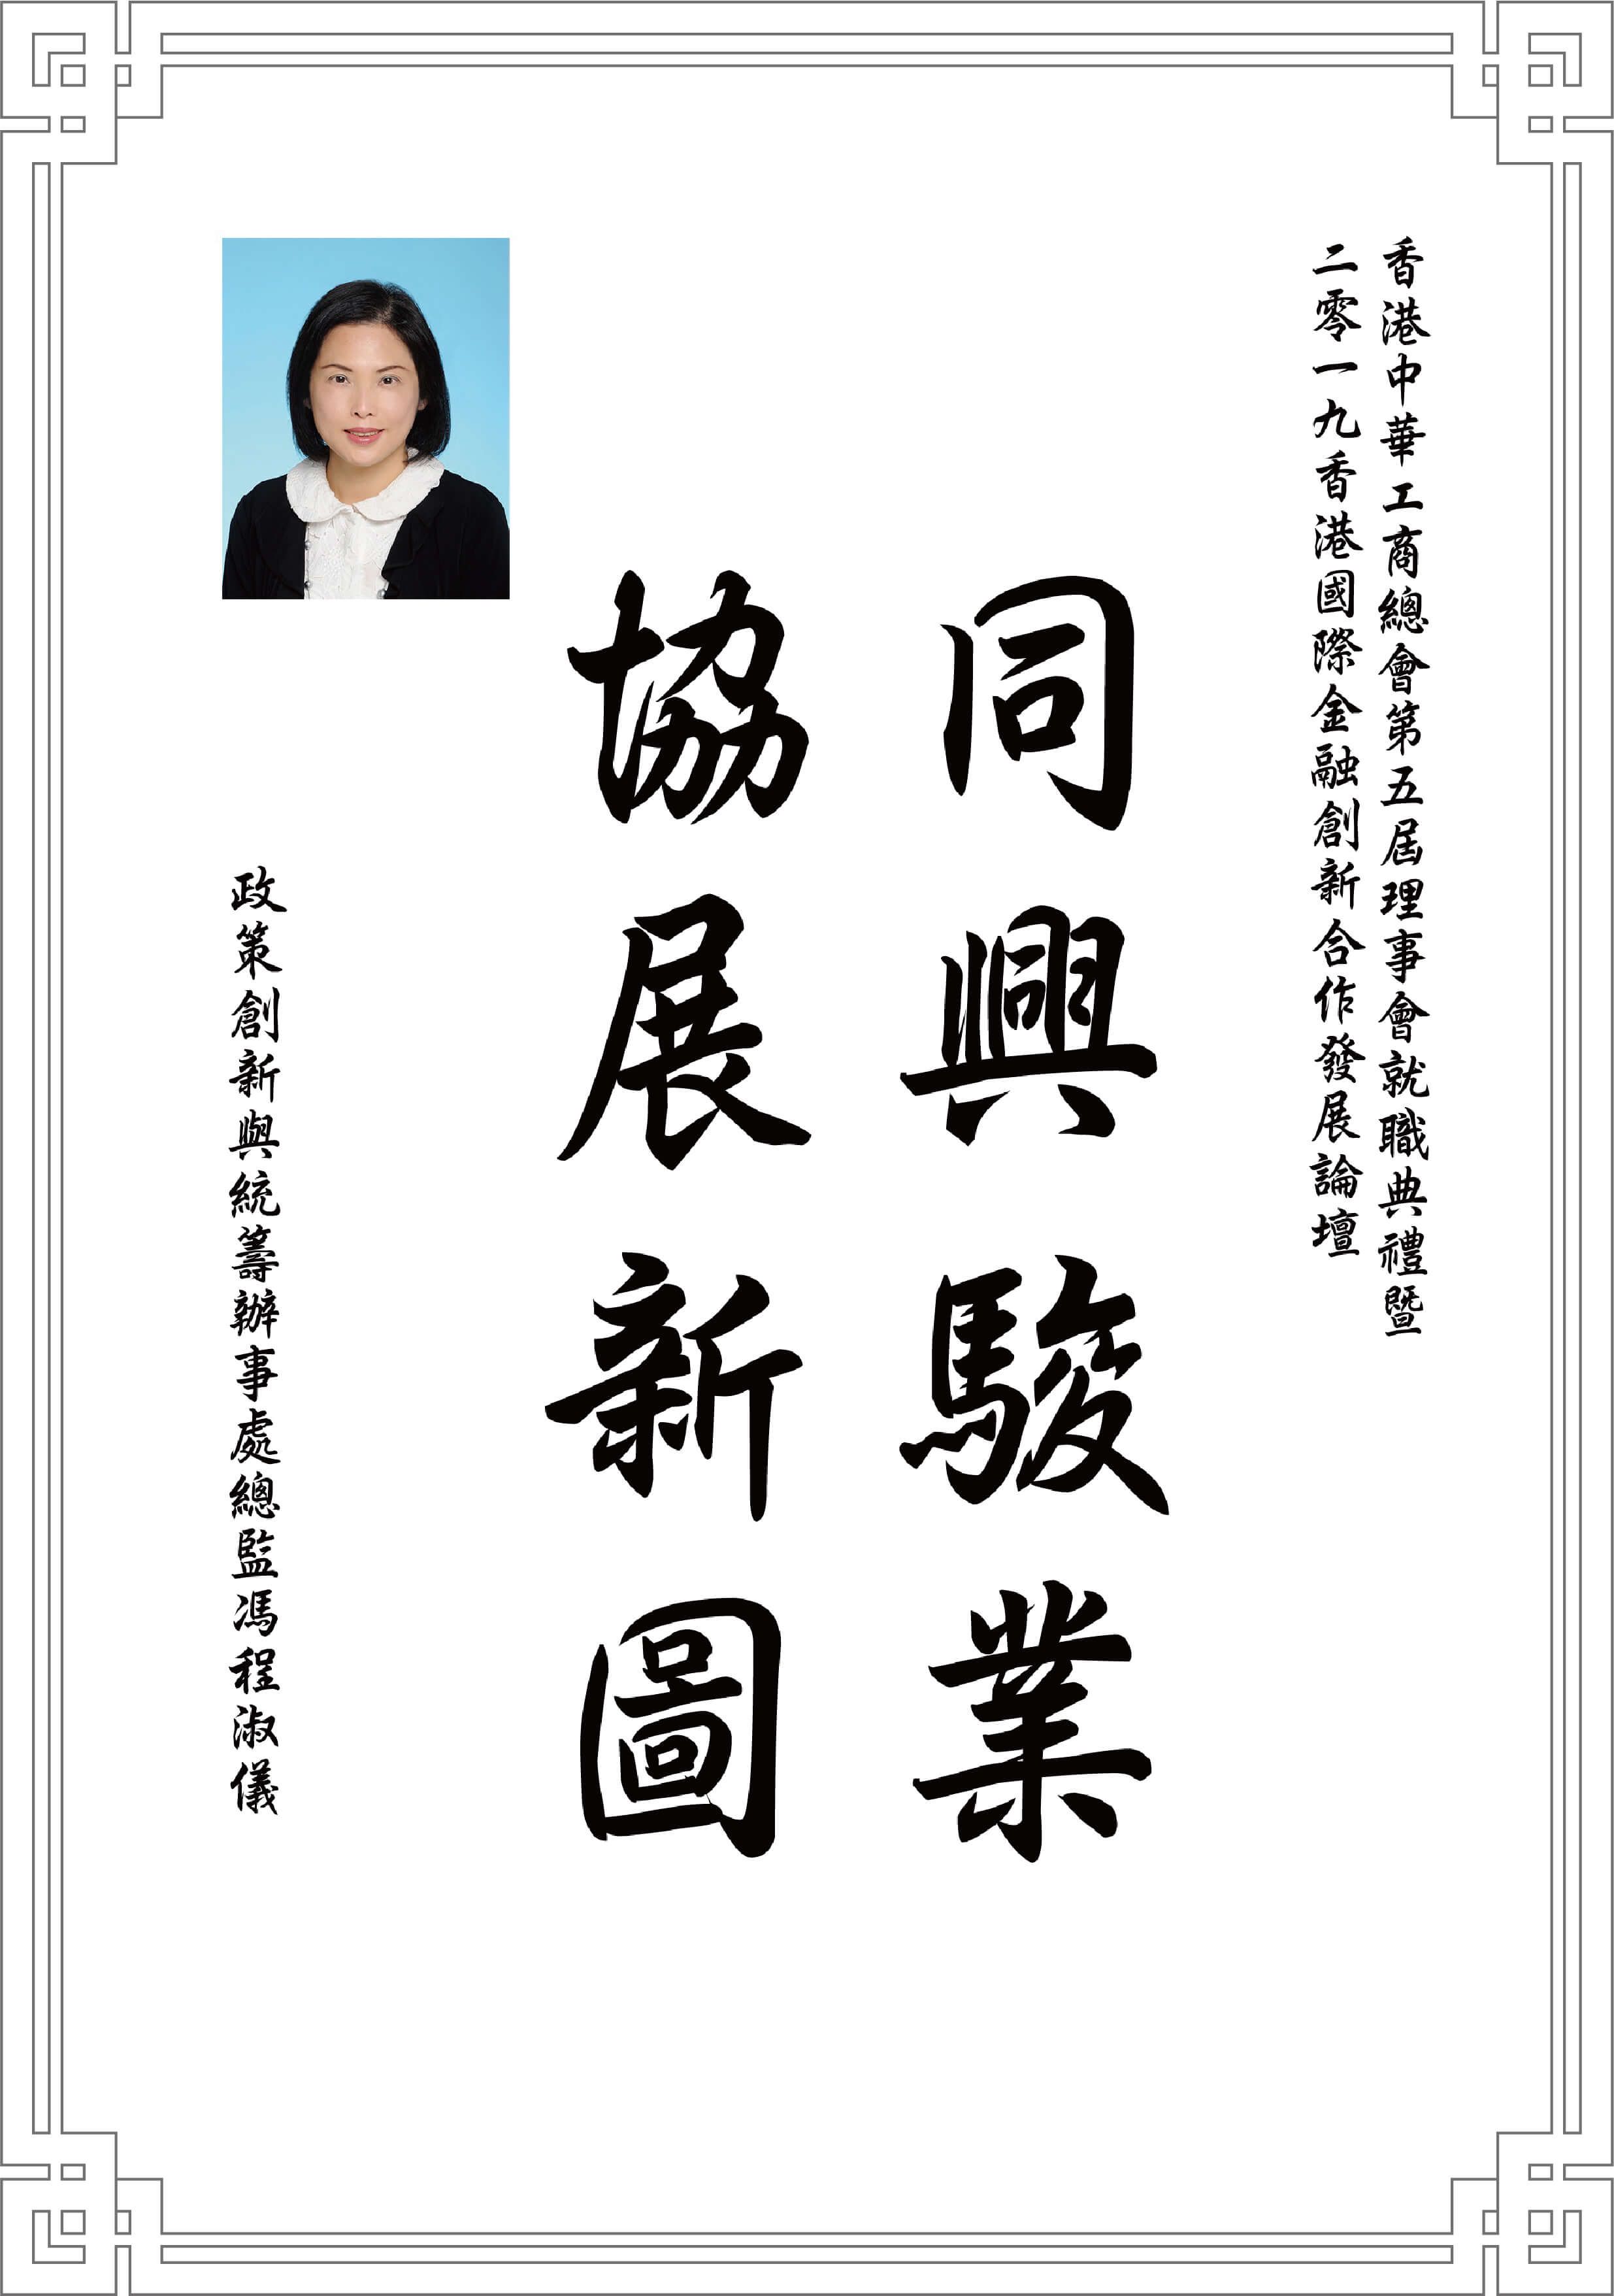 香港中華工商總會第五屆理事會就職典禮暨
二零一九香港國際金融創新合作發展論壇
同興駿業
協展新圖
政策創新與統籌辦事處總監馮程淑儀